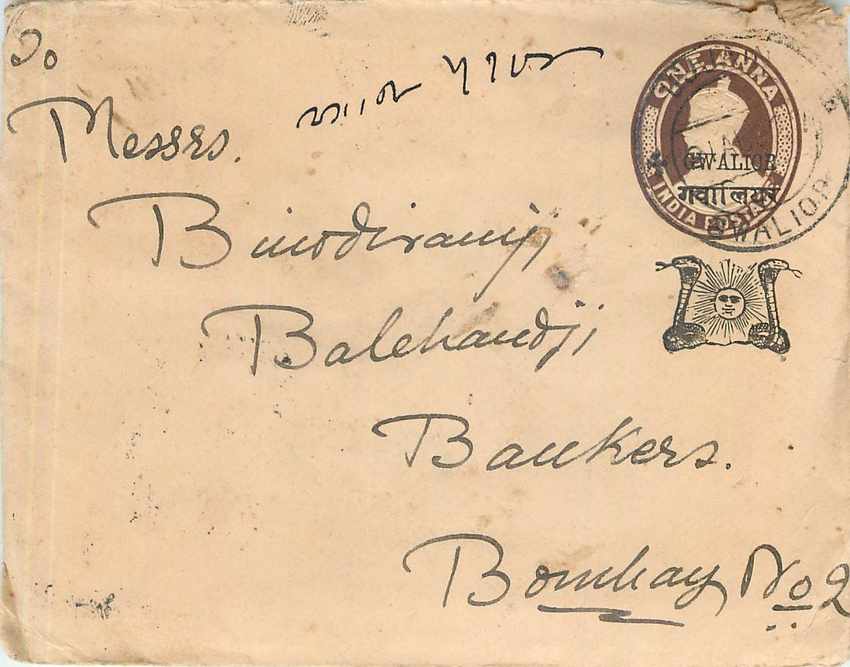 To
Messrs.
Binodiramji
Balchandji
Bankers.
Bombay No 2
ONE ANNA
GWALIOR
गवालियर
INDIA POSTAGE
GWALIOR